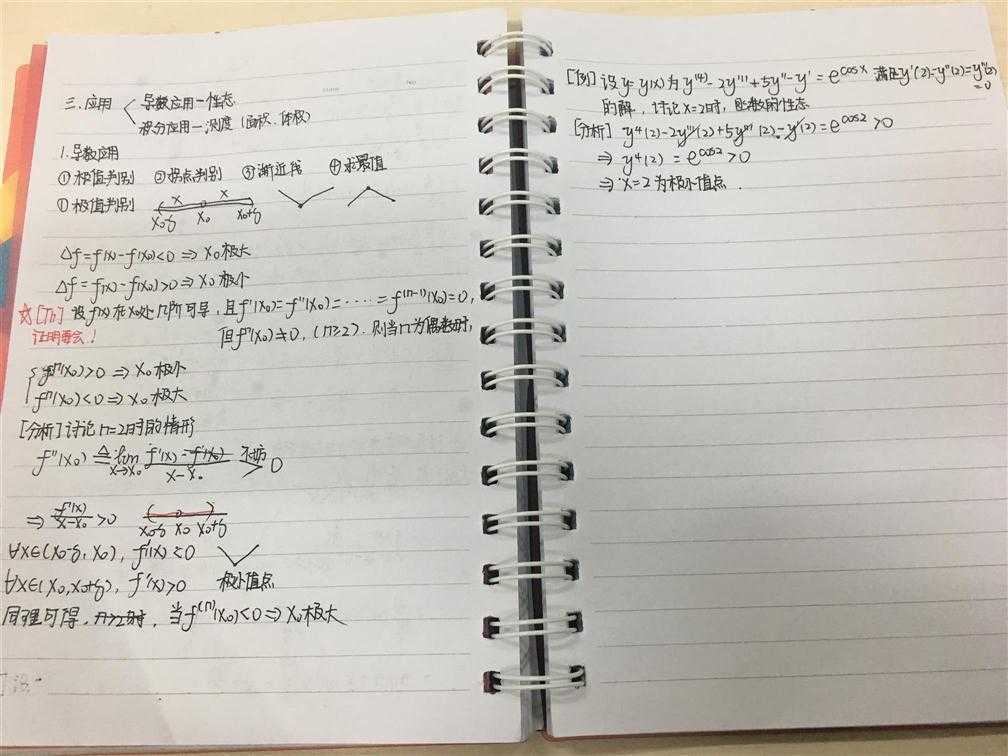 三.应用 < 导数应用—性态
积分应用—测度(面积、体积)
1.导数应用
①极值判别 ②拐点判别 ③渐近线 ④求最值
①极值判别 x x
x₀-δ x₀ x₀+δ
Δf=f(x)-f(x₀)<0 ⇒ x₀极大
Δf=f(x)-f(x₀)>0 ⇒ x₀极小
☆[Th] 设f(x)在x₀处n阶可导,且f'(x₀)=f''(x₀)=····=f⁽ⁿ⁻¹⁾(x₀)=0,
证明要会! 但fⁿ(x₀)≠0,(n≥2).则当n为偶数时,
{ fⁿ(x₀)>0 ⇒ x₀极小
fⁿ(x₀)<0 ⇒ x₀极大
[分析]讨论n=2时的情形
f''(x₀) ≜ lim x→x₀ f'(x)-f'(x₀) / x-x₀ 不妨 > 0
⇒ f'(x) / x-x₀ >0 x₀-δ x₀ x₀+δ
∀x∈(x₀-δ, x₀), f'(x)<0
∀x∈(x₀,x₀+δ), f'(x)>0 极小值点
同理可得, n>2时, 当f⁽ⁿ⁾(x₀)<0 ⇒ x₀极大
[例] 设y=y(x)为y⁽⁴⁾-2y'''+5y''-y'=e^cosx 满足y'(2)=y''(2)=y'''(2)
=0
的解,讨论x=2时,函数的性态
[分析] y⁴(2)-2y'''(2)+5y''(2)-y'(2)=e^cos2>0
⇒ y⁴(2) = e^cos2>0
⇒ x=2为极小值点.